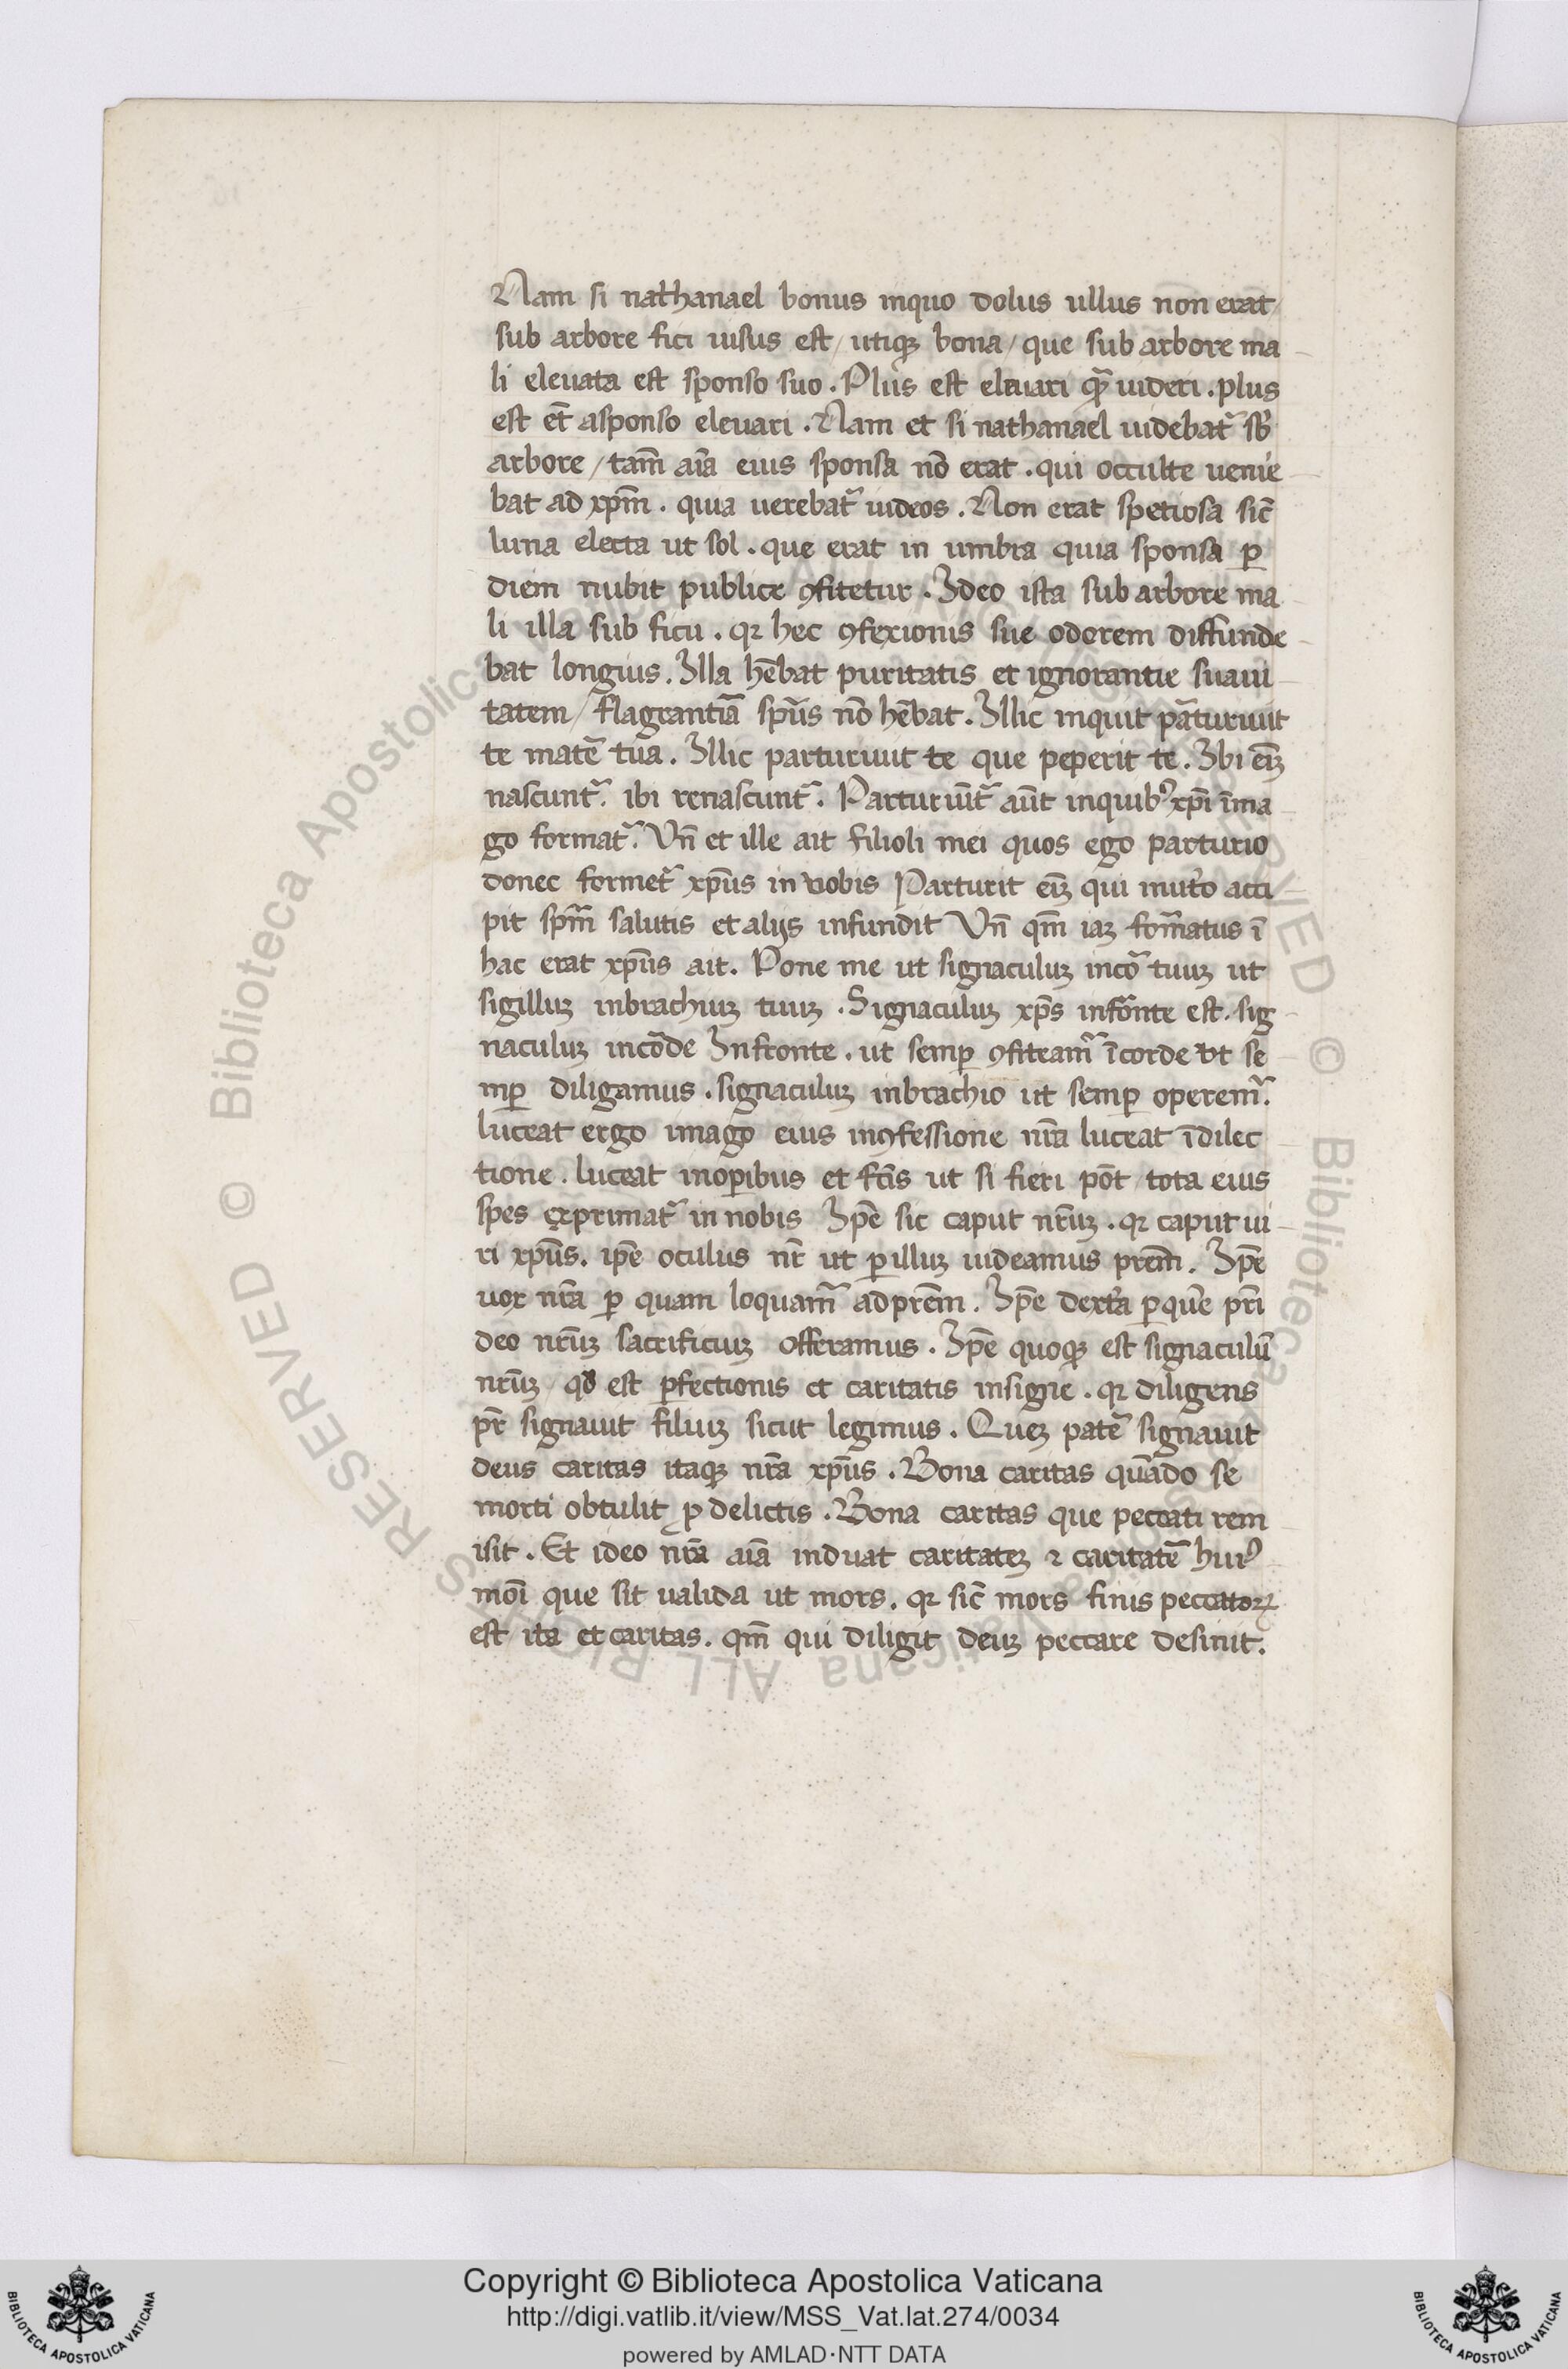 Nam si nathanael bonus inquo dolus ullus non erat/
sub arbore fici uisus est / utiqꝫ bona / que sub arbore ma
li eleuata est sponso suo . Plus est eleuari qᷓ uideri . plus
est et̄ asponso eleuari . Nam et si nathanael uidebat᷑ sb̾
arbore / tam̄ aīa eius sponsa nō erat . qui occulte uenie
bat ad xp̄m . quia uerebat᷑ iudeos . Non erat spetiosa sic̄
luna electa ut sol . que erat in umbra quia sponsa ꝑ
diem nubit publice ꝯfitetur . Ideo ista sub arbore ma
li illa sub ficu . qꝛ hec ꝯfexionis sue odorem diffunde
bat longius . Illa hēbat puritatis et ignorantie suaui
tatem / flagrantiā sp̄us nō hēbat . Illic inquit pᷓturiuit
te mate᷑ tua . Illic parturiuit te que peperit te . Ibi eīꝫ
nascunt᷑ . ibi renascunt᷑ . Parturiūt᷑ aūt inquibꝰ xp̄i īma
go format᷑ . Vn̄ et ille ait filioli mei quos ego parturio
donec formet᷑ xp̄us in uobis Parturit eīꝫ qui muto acci
pit sp̄m salutis et alijs infundit Vn̄ qm̄ iaꝫ fom᷑atus ī
hac erat xp̄us ait . Pone me ut signaculuꝫ inco᷑ tuuꝫ ut
sigilluꝫ inbrachiuꝫ tuuꝫ . Signaculuꝫ xp̄s infᷓonte est . sig
naculuꝫ inco᷑de Infronte . ut semꝑ ꝯfiteam᷑ īcorde ut se
mꝑ diligamus . signaculuꝫ inbrachio ut semꝑ operem᷑ .
luceat ergo imago eius inꝯfessione nr̄a luceat īdilec
tione . luceat inoꝑibus et fc̄is ut si fieri pōt / tota eius
spes exprimat᷑ in nobis Ip̄e sic caput nr̄uꝫ . qꝛ caput ui
ri xp̄us . ip̄e oculus nr̄ ut ꝑ illuꝫ uideamus pr̄em . Ip̄e
uox nr̄a ꝑ quam loquam᷑ adpr̄em . Ip̄e dext᷑a ꝑquē pr̄i
deo nr̄uꝫ sacrificiuꝫ offeramus . Ip̄e quoqꝫ est signaculū
nr̄uꝫ / qđ est ꝑfectionis et caritatis insigne . qꝛ diligens
pr̄ signauit filiuꝫ sicut legimus . Queꝫ pate᷑ signauit
deus caritas itaqꝫ nr̄a xp̄us . Bona caritas quādo se
morti obtulit ꝓ delictis . Bona caritas que peccati rem
isit . Et ideo nr̄a aīa induat caritateꝫ ⁊ caritatē huiꝰ
moī que sit ualida ut mors . qꝛ sic̄ mors finis peccatoꝝ
est / ita et caritas . qm̄ qui diligit deuꝫ peccare desinit .
Copyright © Biblioteca Apostolica Vaticana
http://digi.vatlib.it/view/MSS_Vat.lat.274/0034
powered by AMLAD·NTT DATA
BIBLIOTECA APOSTOLICA VATICANA
BIBLIOTECA APOSTOLICA VATICANA